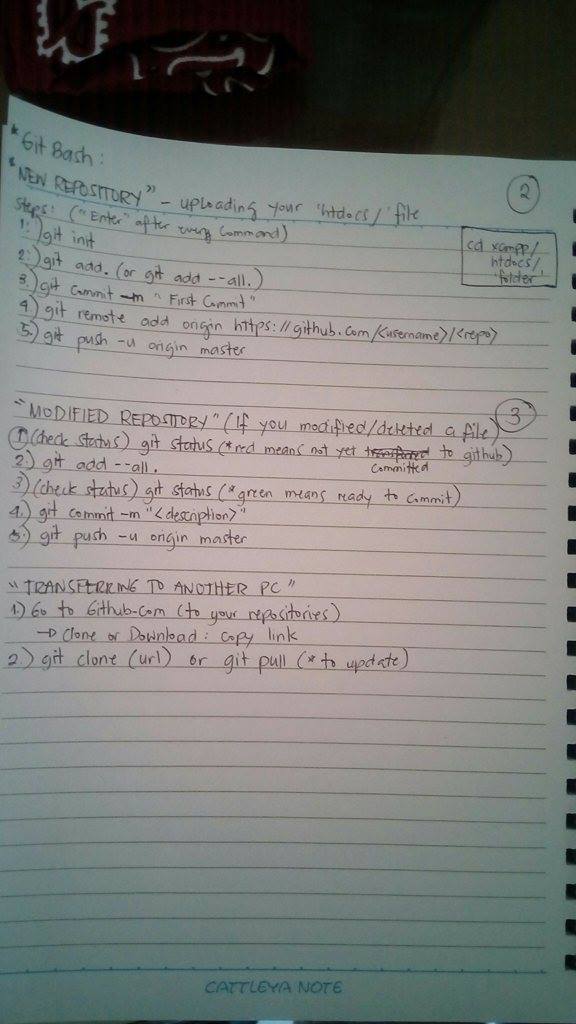 * Git Bash:
* "NEW REPOSITORY" - uploading your 'htdocs/' file
2
Steps: ("Enter" after every command)
cd xampp/
htdocs/
'folder'
1.) git init
2.) git add. (or git add --all.)
3.) git commit -m "First Commit"
4.) git remote add origin https://github.com/<username>/<repo>
5.) git push -u origin master
3
"MODIFIED REPOSITORY" (If you modified/deleted a file)
1.) (check status) git status (*red means not yet committed to github)
2.) git add --all.
3.) (check status) git status (*green means ready to commit)
4.) git commit -m "<description>"
5.) git push -u origin master
"TRANSFERRING TO ANOTHER PC"
1.) Go to Github.com (to your repositories)
→ Clone or Download: copy link
2.) git clone (url) or git pull (* to update)
CATTLEYA NOTE